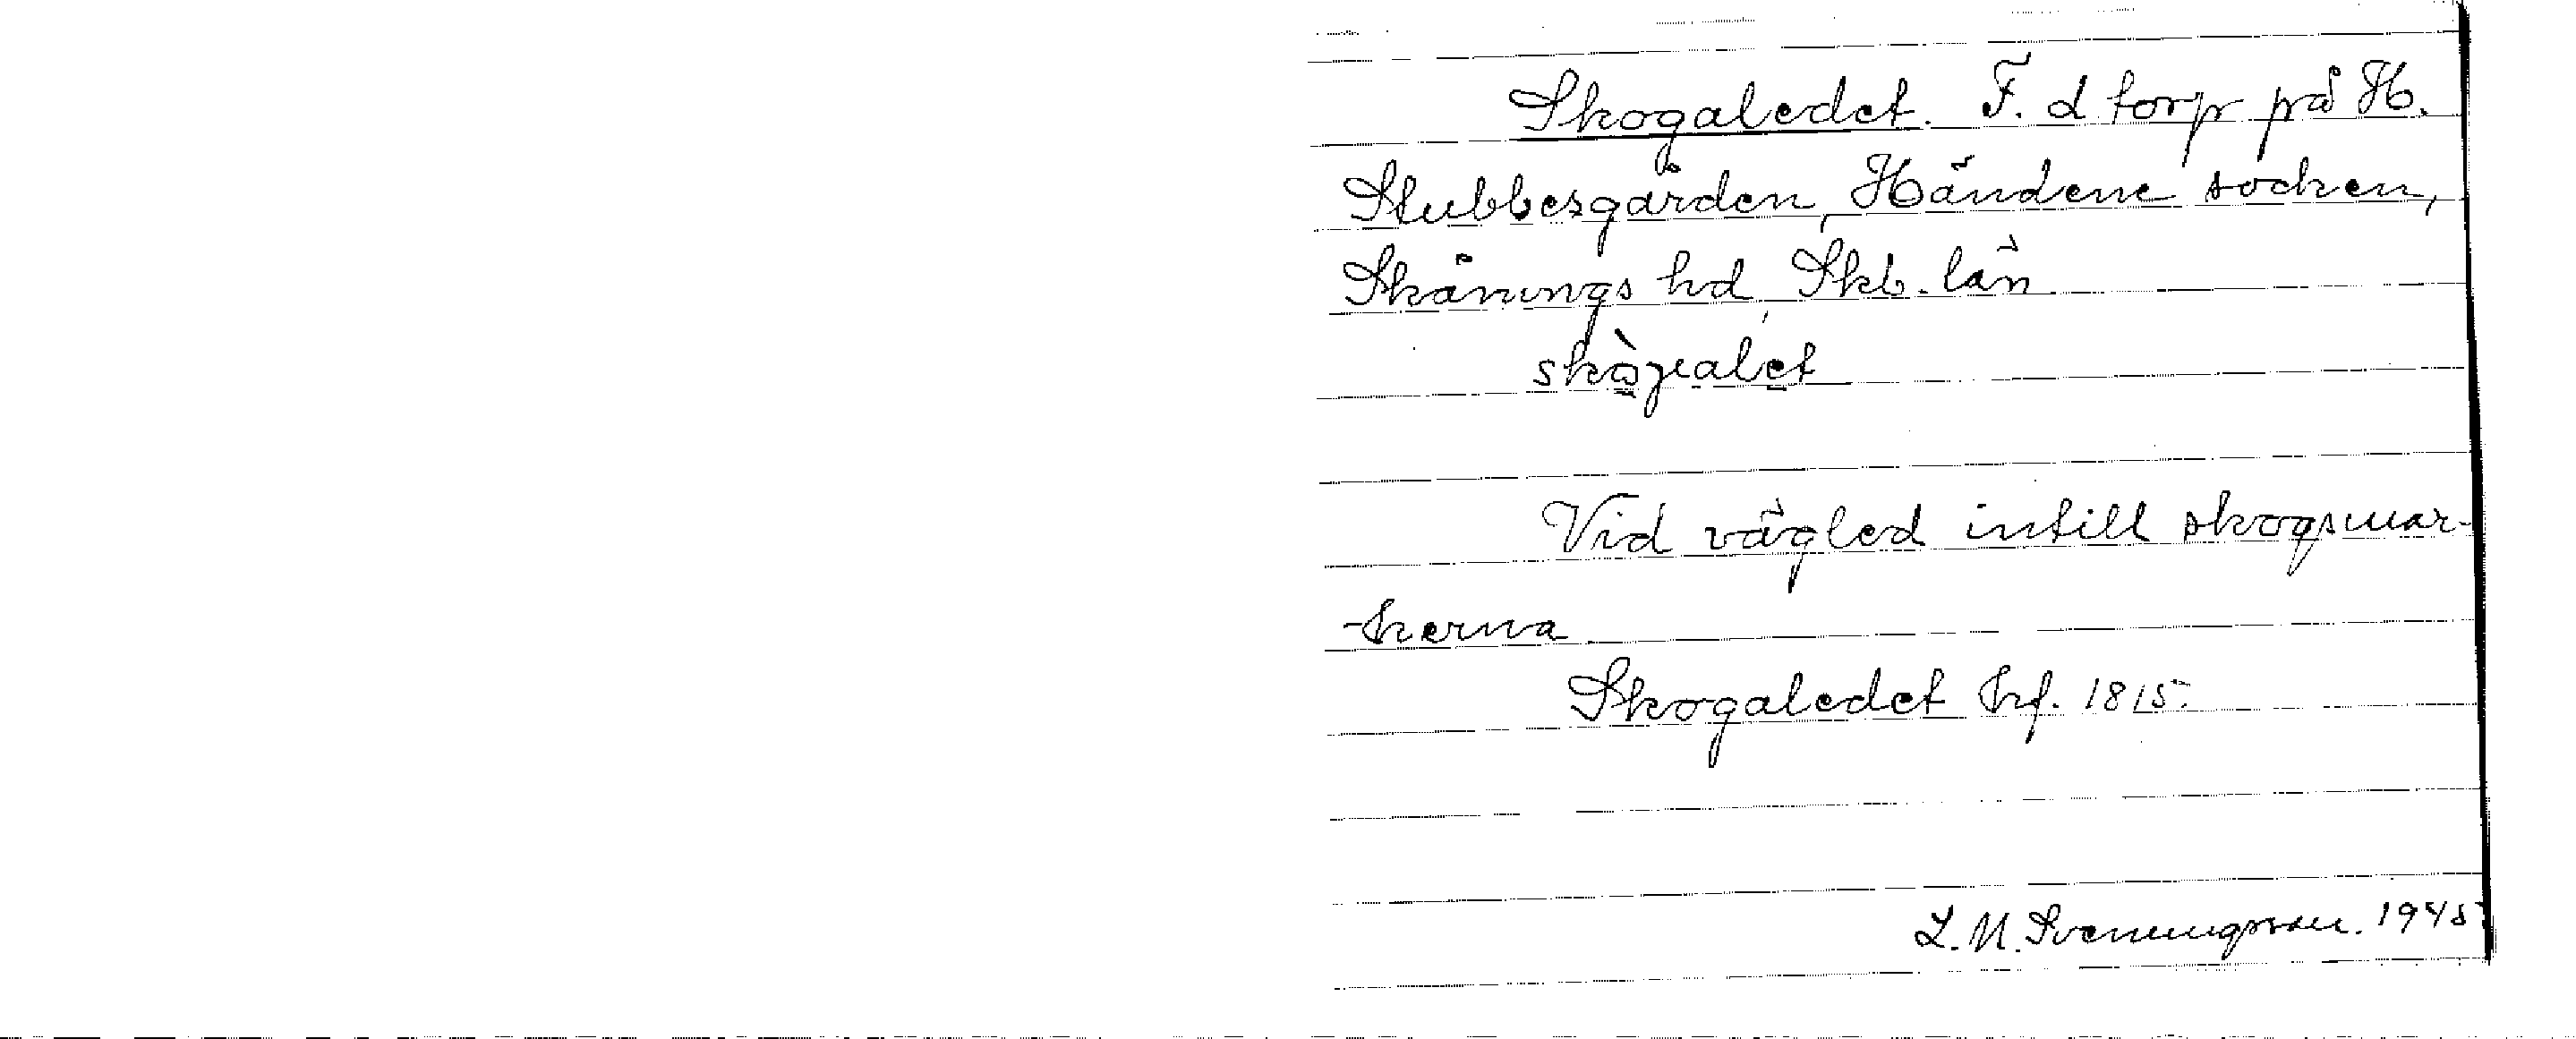 Skogaledet. F. d torp på H.
Stubbesgården, Händene socken,
Skånings hd, Skb. län
Vid vägled intill skogsmar-
-kerna
Skogaledet hf. 1815.
L. M. Svenungsson. 1945